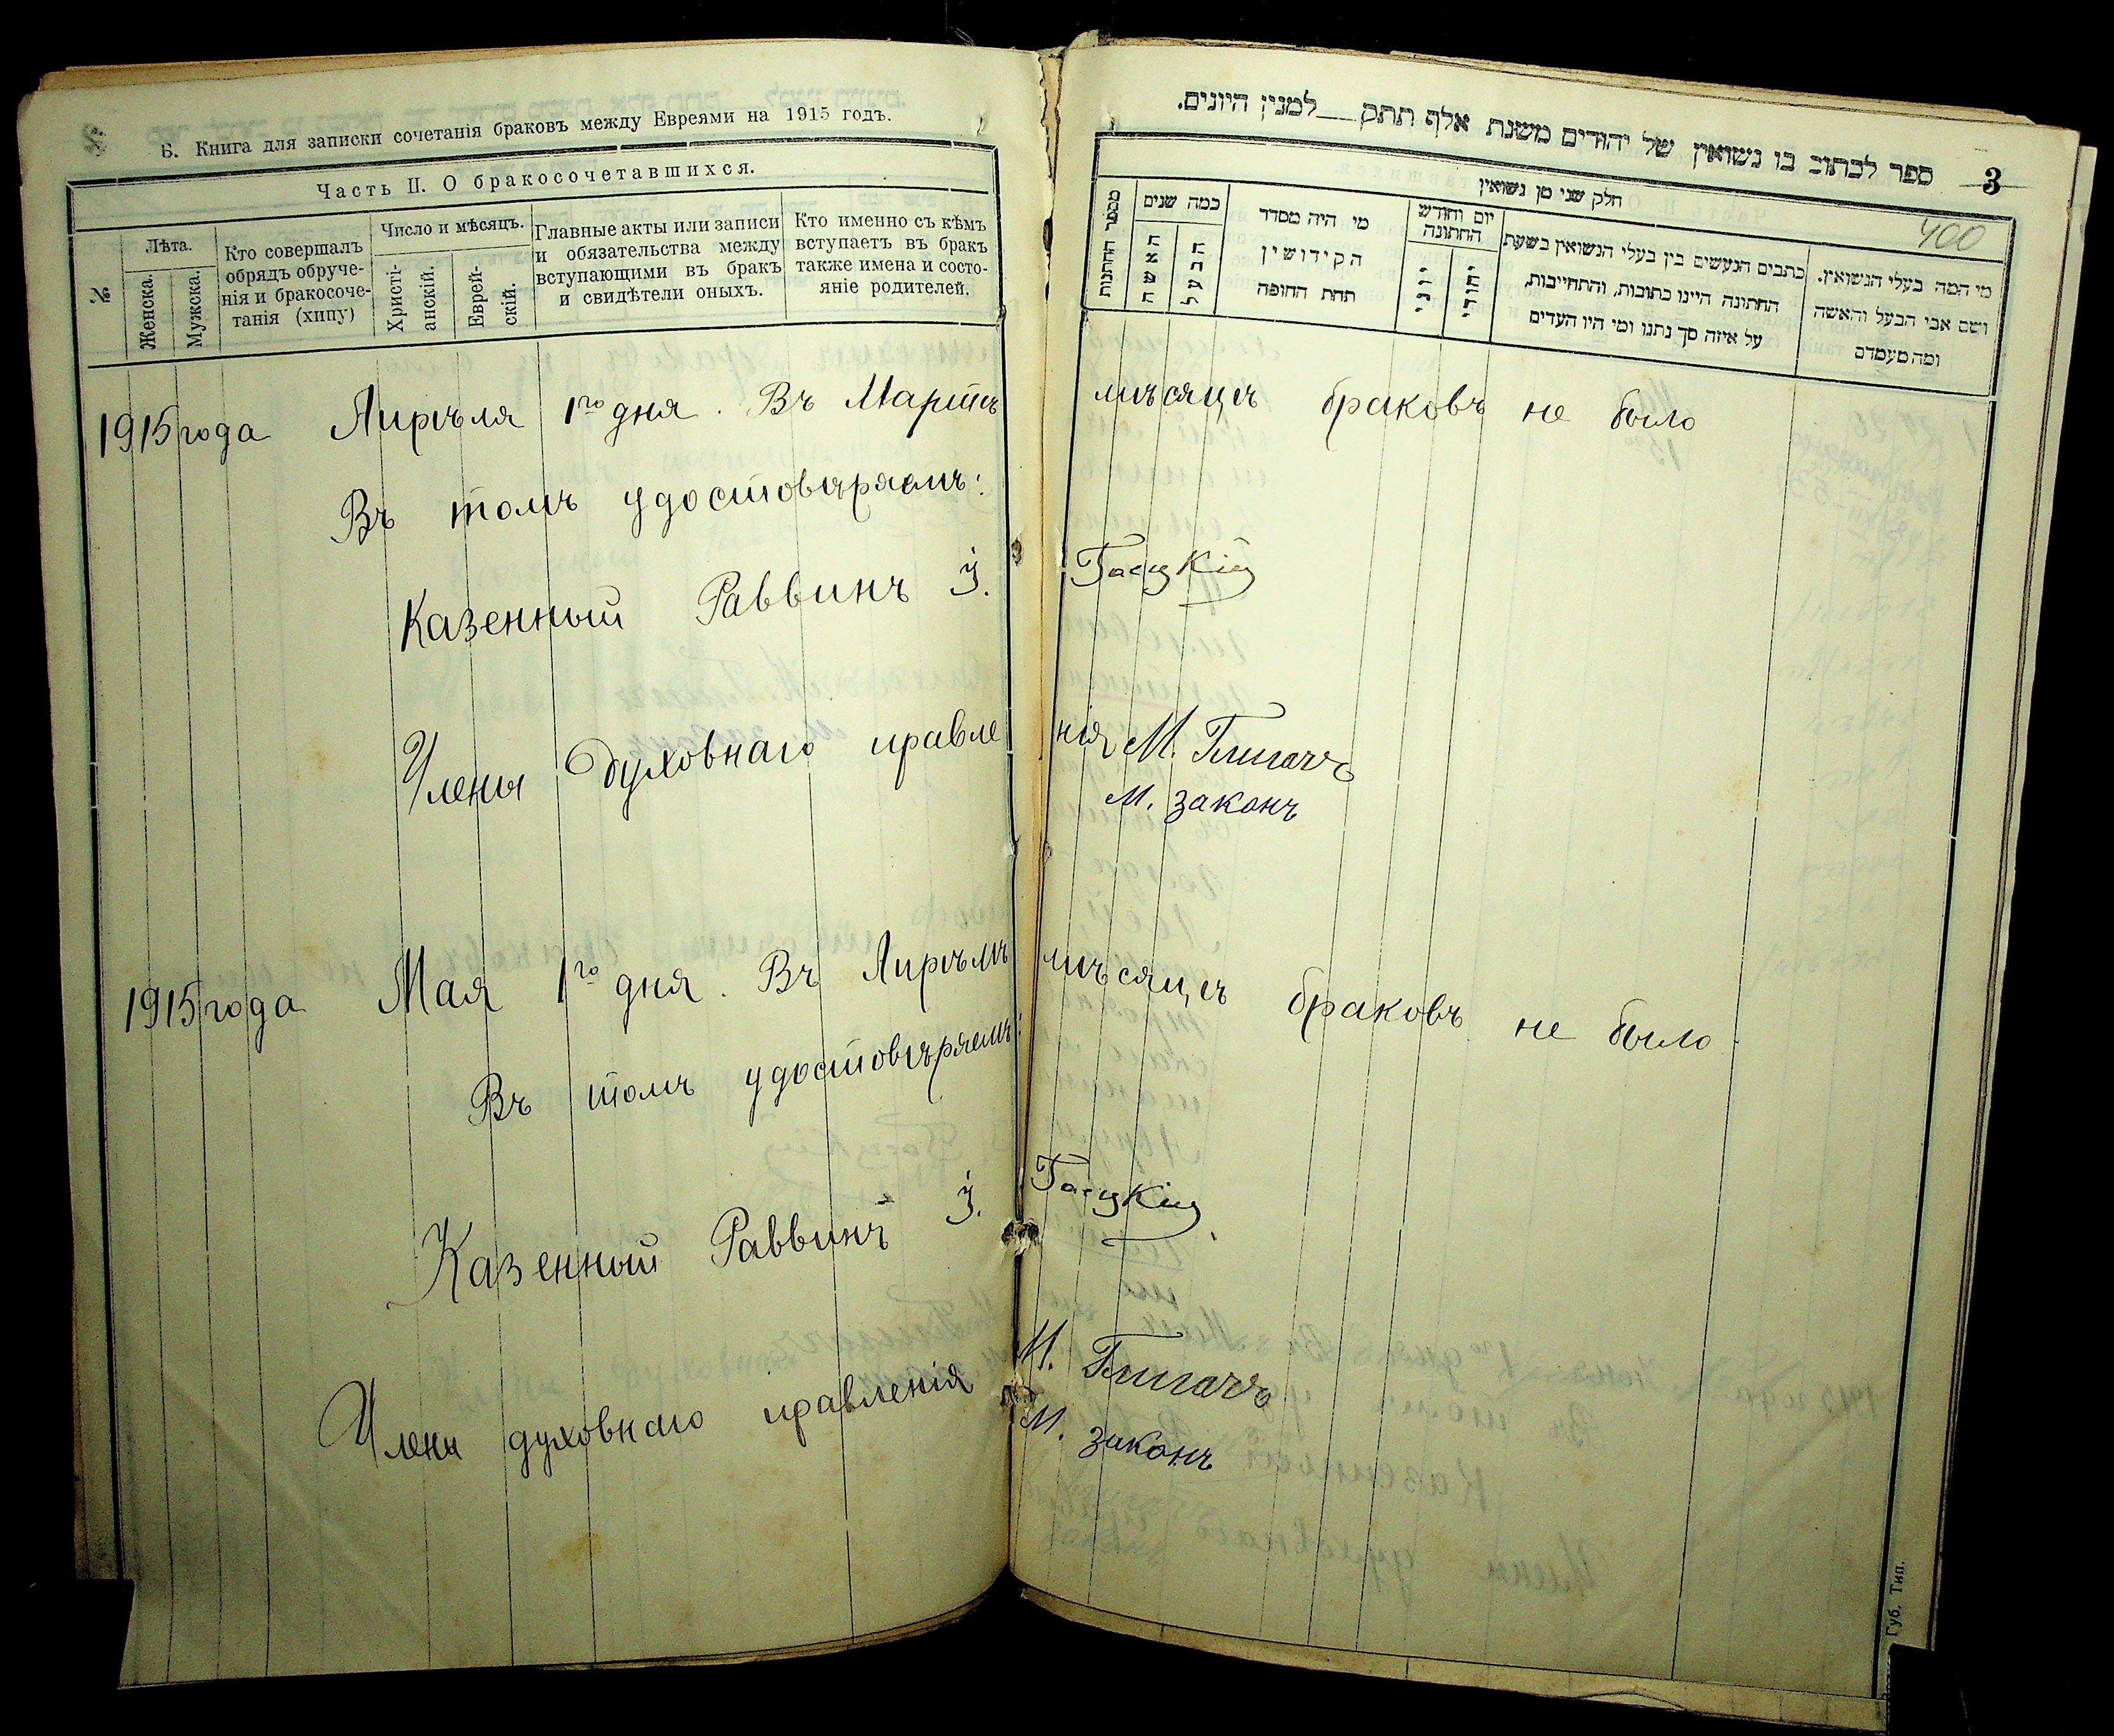 Б. Книга для записки сочетанія браковъ между Евреями на 1915 годъ.
Часть II. О бракосочетавшихся.
№
Лѣта.
Женска.
Мужска.
Кто совершалъ
обрядъ обруче-
нія и бракосоче-
танія (хипу)
Число и мѣсяцъ.
Христі-
анскій.
Еврей-
скій.
Главные акты или записи
и обязательства между
вступающими въ бракъ
и свидѣтели оныхъ.
Кто именно съ кѣмъ
вступаетъ въ бракъ
также имена и состо-
яніе родителей.
ספר לכתוב בו נשואין של יהודים משנת אלף תתק למנין היונים.
3
400
חלק שני מן נשואין
מספר החתונות
כמה שנים
האשה
הבעל
מי היה מסדר
הקידושין
תחת החופה
יום וחודש
החתונה
יוני
יהודי
כתבים הנעשים בין בעלי הנשואין בשעת
החתונה היינו כתובות, והתחייבות,
על איזה סך נתנו ומי היו העדים
מי המה בעלי הנשואין.
ושם אבי הבעל והאשה
ומה מעמדם
1915 года Апрѣля 1го дня. Въ Мартѣ мѣсяцѣ браковъ не было
Въ томъ удостовѣряемъ:
Казенный Раввинъ І.
Члены Духовнаго правленія М.
М. Законъ
1915 года Мая 1го дня. Въ Апрѣлѣ мѣсяцѣ браковъ не было
Въ томъ удостовѣряемъ:
Казенный Раввинъ І.
Члены духовнаго правленія М.
М. Законъ
Губ. Тип.